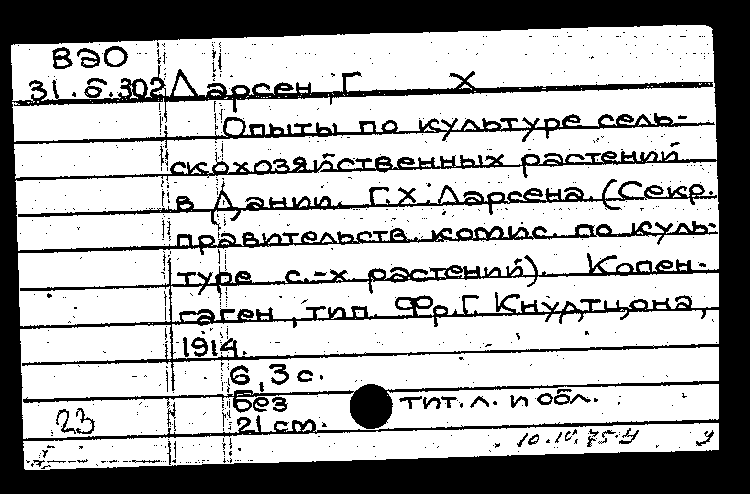 ВЭО
31.6.302 Ларсен, Г Х
Опыты по культуре сель-
скохозяйственных растений
в Дании. Г.Х. Ларсена. (Секр.
правительств. комис. по куль-
туре с.-х растений). Копен-
гаген, тип. Фр.Г. Кнудтцона,
1914.
6, 3 с.
без тит. л. и обл.
23
21 cm.
10.IV.75